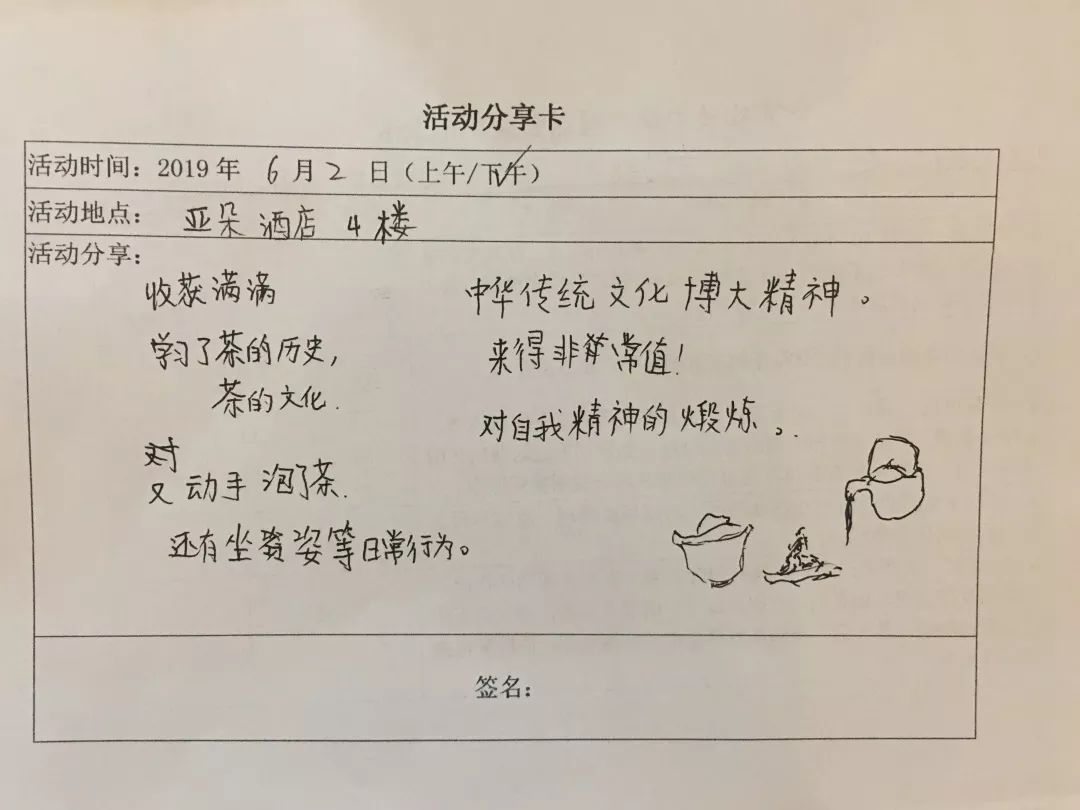 活动分享卡
活动时间：2019年 6月2 日（上午/下午）
活动地点： 亚朵酒店4楼
活动分享：
收获满满
学习了茶的历史，
茶的文化.
对
又动手泡了茶.
还有坐姿等日常行为。
中华传统文化博大精神。
来得非常值！
对自我精神的煅炼。
签名：